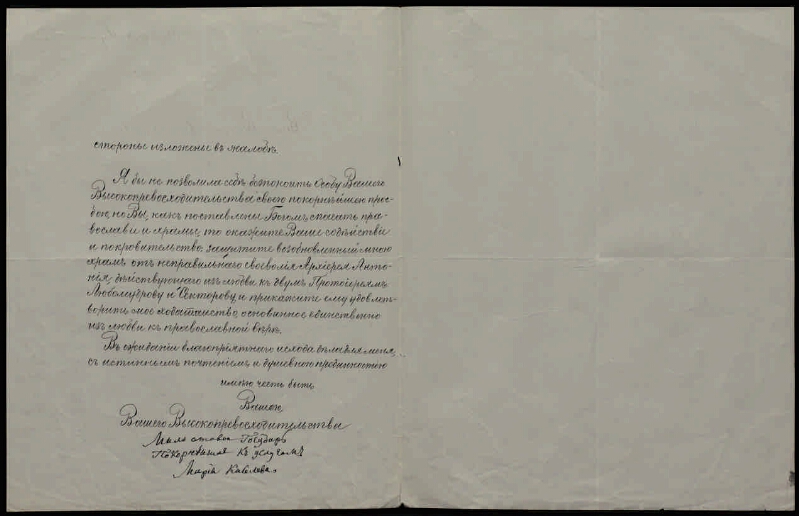 стороны изложены въ жалобѣ.
Я бы не позволила себѣ безпокоить Особу Вашего
Высокопревосходительства своею покорнѣйшею прось-
бою, но Вы, какъ поставлены Богомъ спасать пра-
вославіи и храмы, то окажите Ваше содѣйствіе
и покровительство, защитите возобновленный мною
храмъ отъ неправильнаго своеволія Архіерея Анто-
нія, дѣйствующаго изъ любви къ двумъ Протоіереямъ
Любомудрову и Секторову, и прикажите ему удовлет-
ворить мое ходатайство, основанное единственно
изъ любви къ православной вѣрѣ.
Въ ожиданіи благопріятнаго исхода дѣла для меня,
съ истиннымъ почтеніемъ и душевною преданностью
имѣю честь быть
Вашею,
Вашего Высокопревосходительства
Милостивой Государь
Покорнѣйшая къ услугамъ
Марія